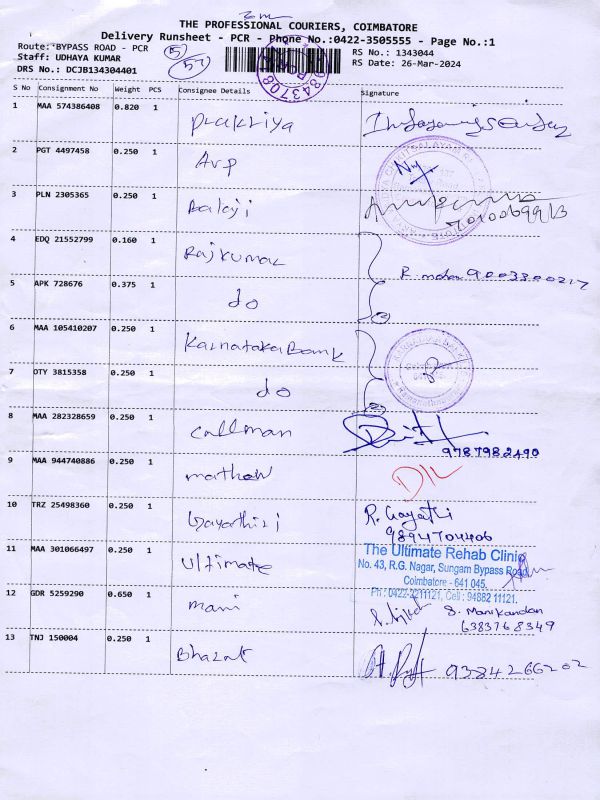 THE PROFESSIONAL COURIERS, COIMBATORE
Delivery Runsheet - PCR - Phone No.:0422-3505555 - Page No.:1
Route: BYPASS ROAD - PCR
Staff: UDHAYA KUMAR
DRS No.: DCJB134304401
RS No.: 1343044
RS Date: 26-Mar-2024
S No Consignment No Weight PCS Consignee Details Signature
1 MAA 574386408 0.820 1 Prakriya
2 PGT 4497458 0.250 1 Arp
3 PLN 2305365 0.250 1 Balaji
4 EDQ 21552799 0.160 1 Rajkumar
R mohan 9003300217
5 APK 728676 0.375 1 do
6 MAA 105410207 0.250 1 Karnataka Bank
7 OTY 3815358 0.250 1 do
8 MAA 282328659 0.250 1 Callman
9787982490
9 MAA 944740886 0.250 1 mathew
10 TRZ 25498360 0.250 1 Gayathiri R. Gayathi
9894704406
11 MAA 301066497 0.250 1 Ultimate
The Ultimate Rehab Clinic
No. 43, R.G. Nagar, Sungam Bypass Road
Coimbatore - 641 045.
Ph : 0422-2211121, Cell : 94882 11121.
12 GDR 5259290 0.650 1 mani
S. Manikandan
6383768349
13 TNJ 150004 0.250 1 Bharat 9384266202